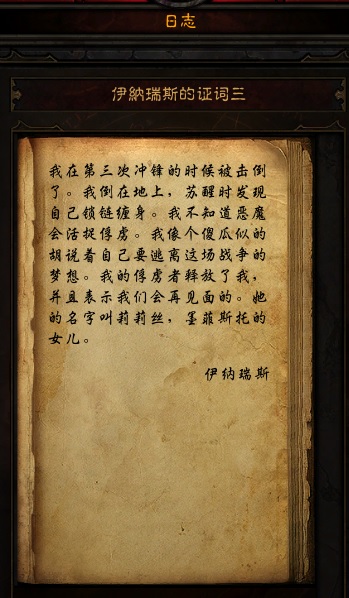 日志
伊納瑞斯的证词三
我在第三次冲锋的时候被击倒
了。我倒在地上，苏醒时发现
自己锁链缠身。我不知道恶魔
会活捉俘虏。我像个傻瓜似的
胡说着自己要逃离这场战争的
梦想。我的俘虏者释放了我，
并且表示我们会再见面的。她
的名字叫莉莉丝，墨菲斯托的
女儿。
伊纳瑞斯